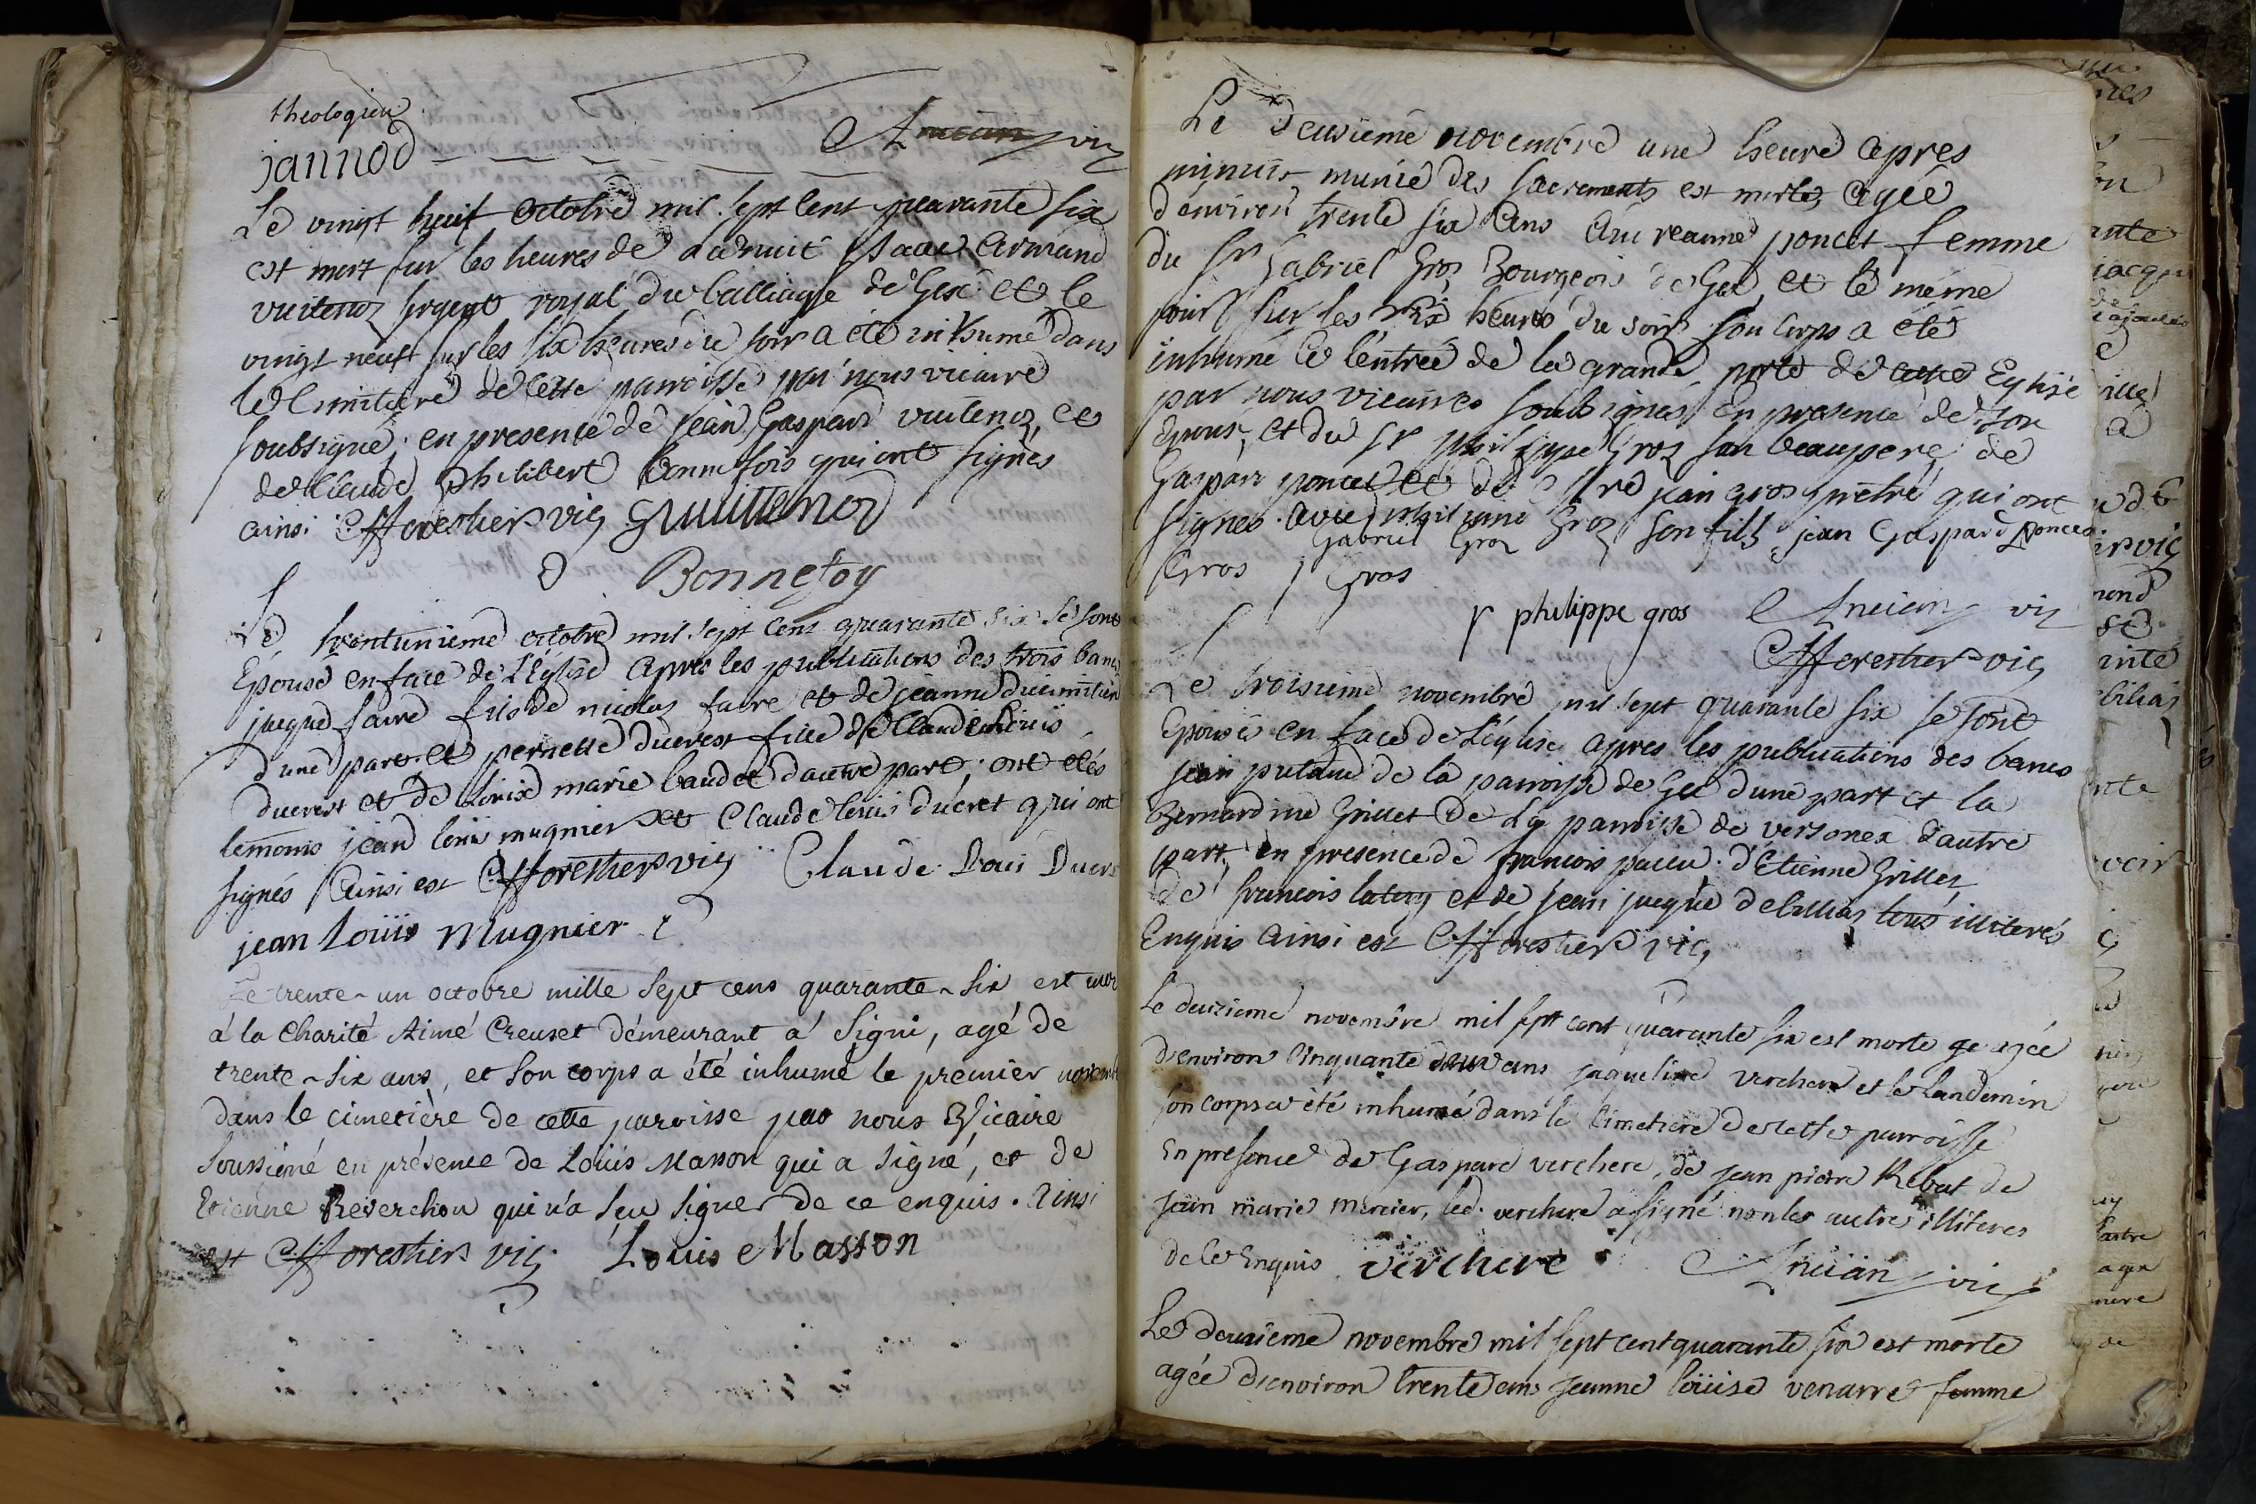 theologien
jannod Ancian vic
Le vingt huit octobre mil sept cent quarante six
est mort sur les heures de minuit Isaac Armand
vuitenoz sergent royal du balliage de Gex et le
vingt neuf sur les six heures du soir a été inhumé dans
le Cimitiere de cette parroisse par nous vicaire
soubsigné, en presence de jean Gaspard vuitenoz, et
de Claude philibert bonnefois qui ont signés
ainsi est fforestier vic Gvuittenoz
Bonnefoy
Le trentunieme octobre mil sept cent quarante six se sont
Epousé en face de L'Eglise apres les publications des trois bancs
jaque favre fils de nicolas favre et de jeanne ducimitiere
d'une part et pernette ducrest fille de Claude Louis
ducrest et de Loüise marie baudet d'autre part; ont étés
temoins jean louis mugnier et Claude louis ducret qui ont
signés ainsi est fforestier vic Claude Louis Ducre
jean Loüis Mugnier
Le trente-un octobre mille sept cens quarante-six est mor
à la Charité Aimé Creuset démeurant à Signi, agé de
trente-six ans, et son corps a été inhumé le premier novemb
dans le cimetière de cette paroisse par nous Vicaire
soussigné en présence de Loüis Masson qui a signé, et de
Etienne Reverchon qui n'a seu signer de ce enquis. Ainsi
est fforestier vic Louis Masson
Le deusieme novembre une heure apres
minuit munie des sacrements est morte agée
d'environ trente six ans Aimé jeanne poncet femme
du Sr Gabriel Gros Bourgeois de Gex, et le même
jour sur les six heures du soir son corps a été
inhumé a l'entreé de la grande porte de cette Eglise
par nous vicaires soubsignés en presence de son
Epoux, et du Sr philippe Gros son beaupere, de
Gaspard poncet et de jean gros prêtre qui ont
signés. avec philippe Gros son fils jean Gaspard poncet
Gabriel Gros
Gros Gros
philippe gros Ancian vic
fforestier vic
Le troisieme novembre mil sept quarante six se sont
Epousés en face de L'église apres les publications des bancs
jean putaud de la parroisse de Gex d'une part et la
Bernardine Grillet de La parroisse de versonex d'autre
part, en presence de francois pacu. d'Etienne Grillet
de francois latoy et de jean jaque delillias tous illiterés
Enquis ainsi est fforestier vic
Le deuzieme novembre mil sept cent quarante six est morte agée
d'environ Cinquante deux ans jaqueline verchere et le landemin
son corps a été inhumé dans le Cimetiere de cette parroisse
En presence de Gaspard verchere, de jean pierre Rebut de
jean marie mercier, led. verchere a signé non les autres illiteres
de ce Enquis verchere Ancian vic
Le deuxieme novembre mil sept cent quarante six est morte
agée d'environ trente ans jeanne loüise venarre femme